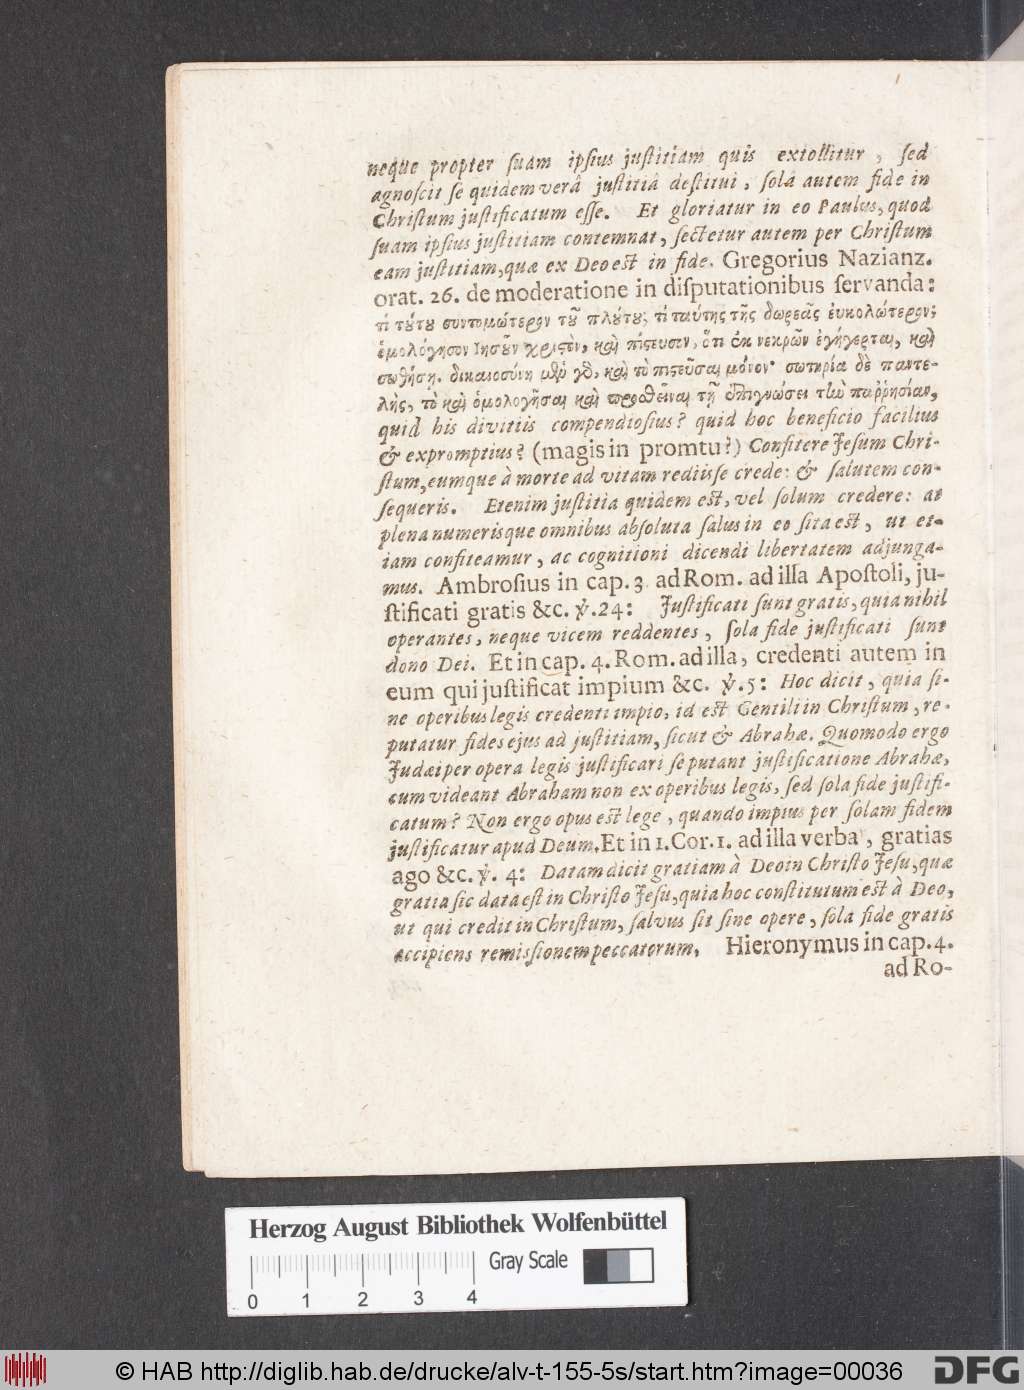 neque propter ſuam ipſius juſtitiam quis extollitur, ſed
agnoſcit ſe quidem verâ juſtitiâ deſtitui, ſolâ autem fide in
Chriſtum juſtificatum eſſe. Et gloriatur in eo Paulus, quod
ſuam ipſius juſtitiam contemnat, ſectetur autem per Chriſtum
eam juſtitiam, quæ ex Deo est in fide. Gregorius Nazianz.
orat. 26. de moderatione in diſputationibus ſervanda:
τί τȣ́τȣ συντομώτερον τȣ͂ πλȣ́τȣ; τί ταύτης τῆς δωρεᾶς ἐυκολώτερον;
ὁμολόγησον Ιησοῦν χριϛὸν, καὶ πίϛευσον, ὅτι ἐκ νεκρῶν ἐγήγερται, καὶ
σωθήσῃ. δικαιοσύνη μὲν γὸ, καὶ τὸ πιϛεῦσαι μόνον· σωτηρία δὲ παντε-
λὴς, τὸ καὶ ὁμολογῆσαι καὶ προσθεῖναι τῇ ἐπιγνώσει τὴν παῤῥησίαν,
quid his divitiis compendioſius? quid hoc beneficio facilius
& expromptius? (magis in promtu?) Confitere Jeſum Chri-
ſtum, eumque à morte ad vitam rediiſſe crede: & ſalutem con-
ſequeris. Etenim juſtitia quidem est, vel ſolum credere: at
plena numerisque omnibus abſoluta ſalus in eo ſita est, ut et-
iam confiteamur, ac cognitioni dicendi libertatem adjunga-
mus. Ambroſius in cap. 3 ad Rom. ad illa Apoſtoli, ju-
ſtificati gratis &c. ỳ. 24: Juſtificati ſunt gratis, quia nihil
operantes, neque vicem reddentes, ſola fide juſtificati ſunt
dono Dei. Et in cap. 4. Rom. ad illa, credenti autem in
eum qui juſtificat impium &c. ỳ. 5: Hoc dicit, quia ſi-
ne operibus legis credenti impio, id est Gentili in Chriſtum, re-
putatur fides ejus ad juſtitiam, ſicut & Abrahæ. Quomodo ergo
Judæi per opera legis juſtificari ſe putant juſtificatione Abrahæ,
cum videant Abraham non ex operibus legis, ſed ſola fide juſtifi-
catum? Non ergo opus est lege, quando impius per ſolam fidem
juſtificatur apud Deum. Et in 1. Cor. 1. ad illa verba, gratias
ago &c. ỳ. 4: Datam dicit gratiam à Deo in Chriſto Jeſu, quæ
gratia ſic data est in Chriſto Jeſu, quia hoc conſtitutum est à Deo,
ut qui credit in Chriſtum, ſalvus ſit ſine opere, ſola fide gratis
accipiens remiſſionem peccatorum. Hieronymus in cap. 4.
ad Ro-
Herzog August Bibliothek Wolfenbüttel
Gray Scale
0 1 2 3 4
© HAB http://diglib.hab.de/drucke/alv-t-155-5s/start.htm?image=00036
DFG